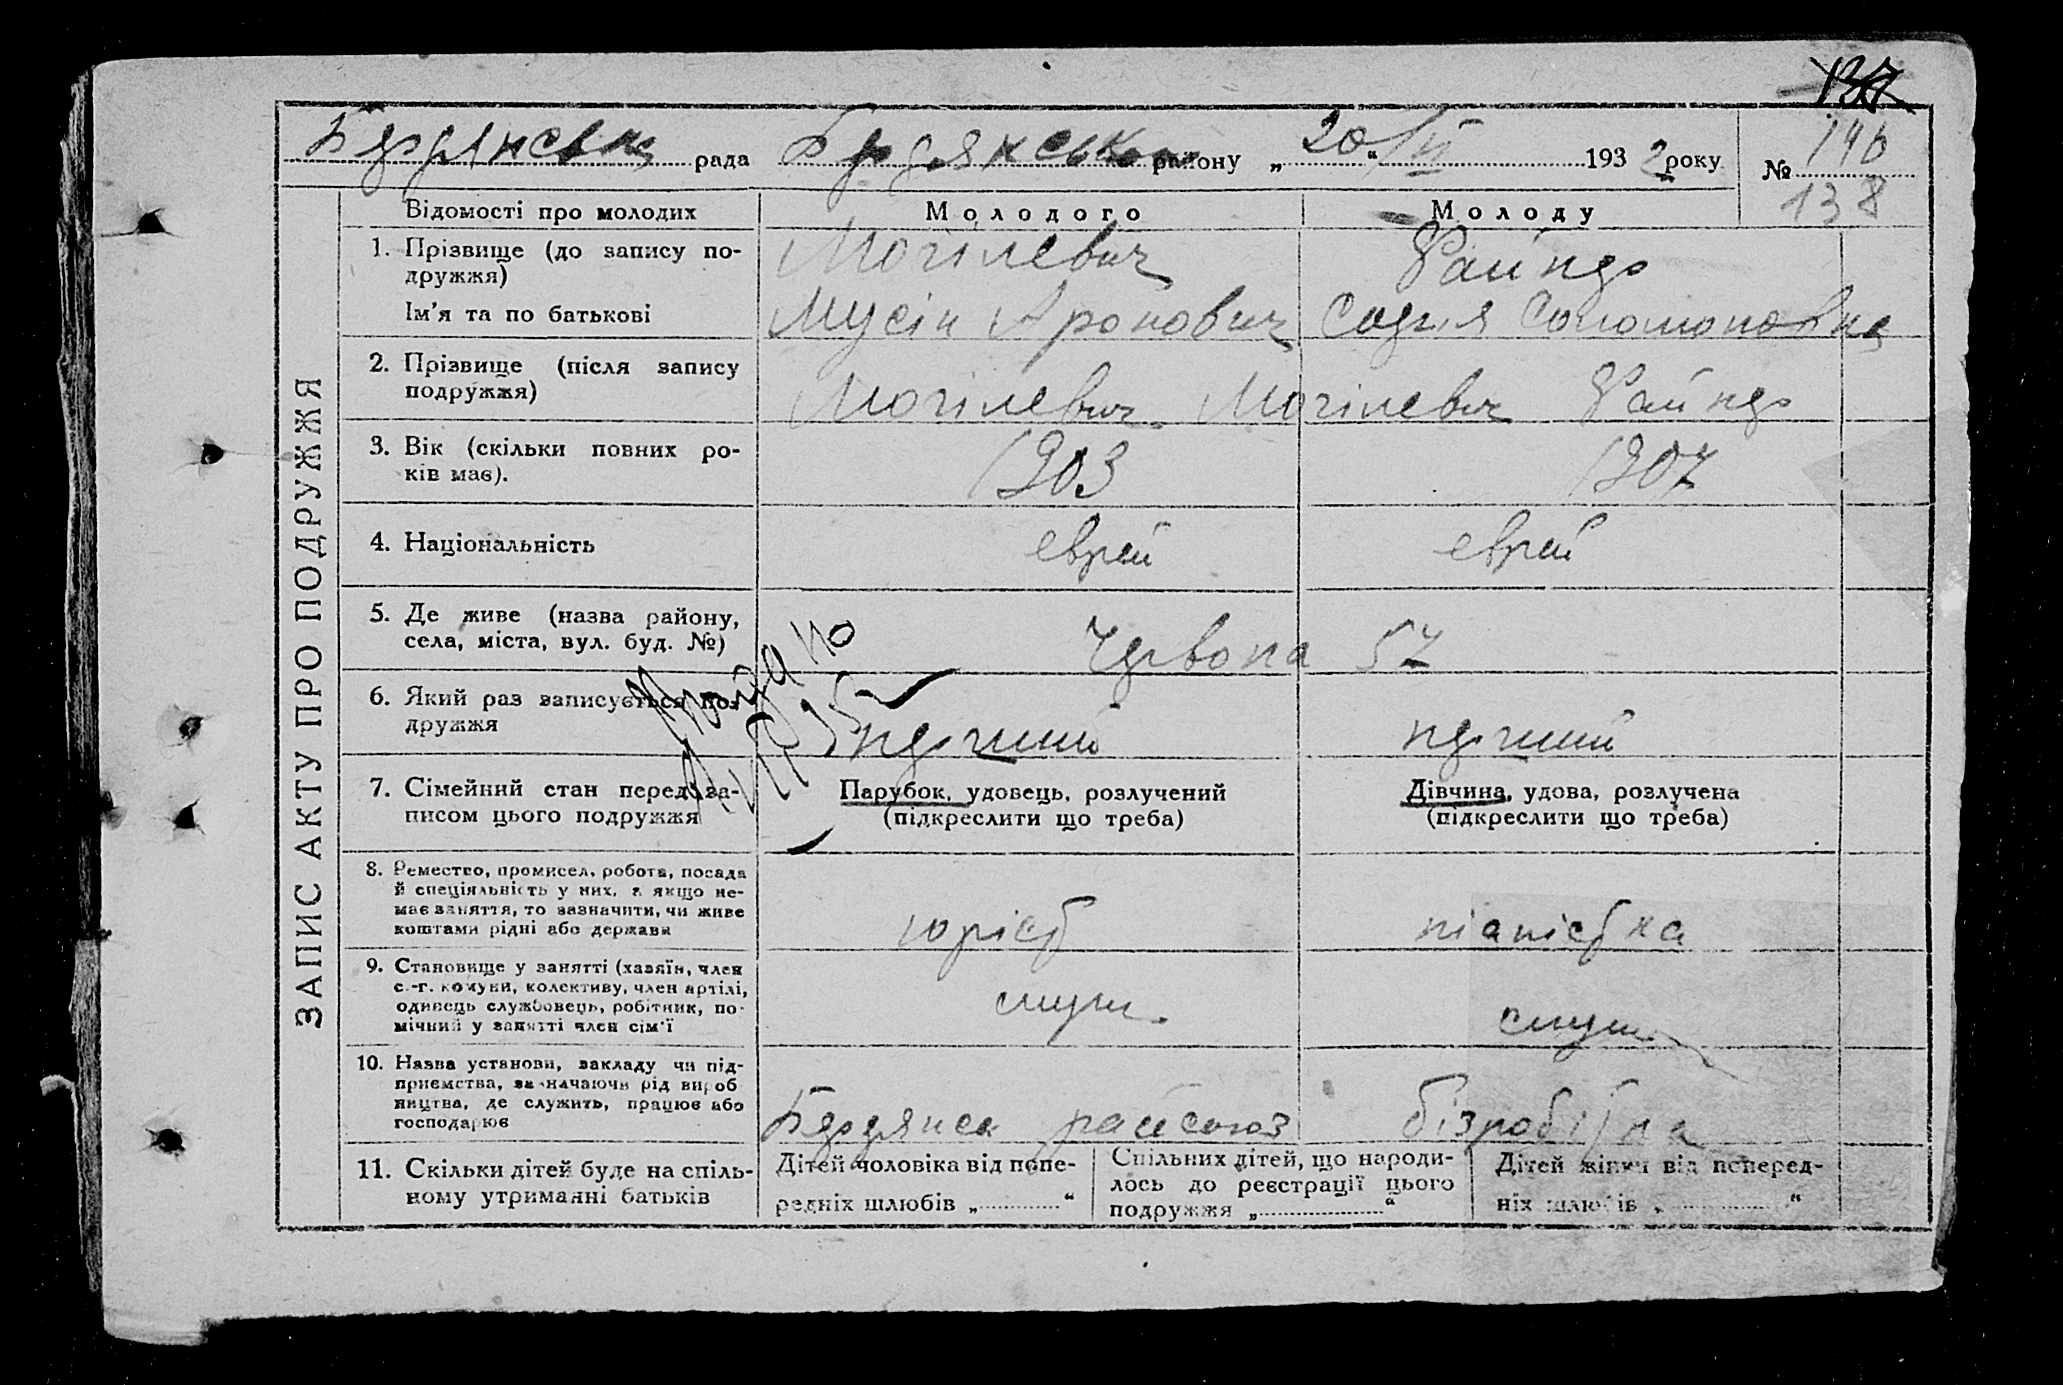 Бердянська рада Бердянського району „20“ VI 1932 року № 146
138
ЗАПИС АКТУ ПРО ПОДРУЖЖЯ
Відомості про молодих Молодого Молоду
1. Прізвище (до запису по-
дружжя)
Могілевич Файнер
Ім'я та по батькові
Мусін Аронович Софія Соломоновна
2. Прізвище (після запису
подружжя)
Могілевич Могілевич Файнер
3. Вік (скільки повних ро-
ків має).
1903 1907
4. Національність еврей еврей
5. Де живе (назва району,
села, міста, вул. буд. №)
Червона 57
6. Який раз записується по-
дружжя
перший перший
7. Сімейний стан перед за-
писом цього подружжя
Парубок, удовець, розлучений
(підкреслити що треба)
Дівчина, удова, розлучена
(підкреслити що треба)
8. Ремество, промисел, робота, посада
й спеціяльність у них, а якщо не-
має заняття, то зазначити, чи живе
коштами рідні або держави
юріст піаністка
9. Становище у занятті (хазяїн, член
с.-г. комуни, колективу, член артілі,
одинець службовець, робітник, по-
мічний у занятті член сім'ї
служ. служ.
10. Назва установи, закладу чи під-
приємства, зазначаючи рід вироб
ництва, де служить, працює або
господарює
Бердянськ райсоюз безробітна
11. Скільки дітей буде на спіль-
ному утриманні батьків
Дітей чоловіка від попе-
редніх шлюбів „ “
Спільних дітей, що народи-
лось до реєстрації цього
подружжя „ “
Дітей жінки від поперед-
ніх шлюбів „ “